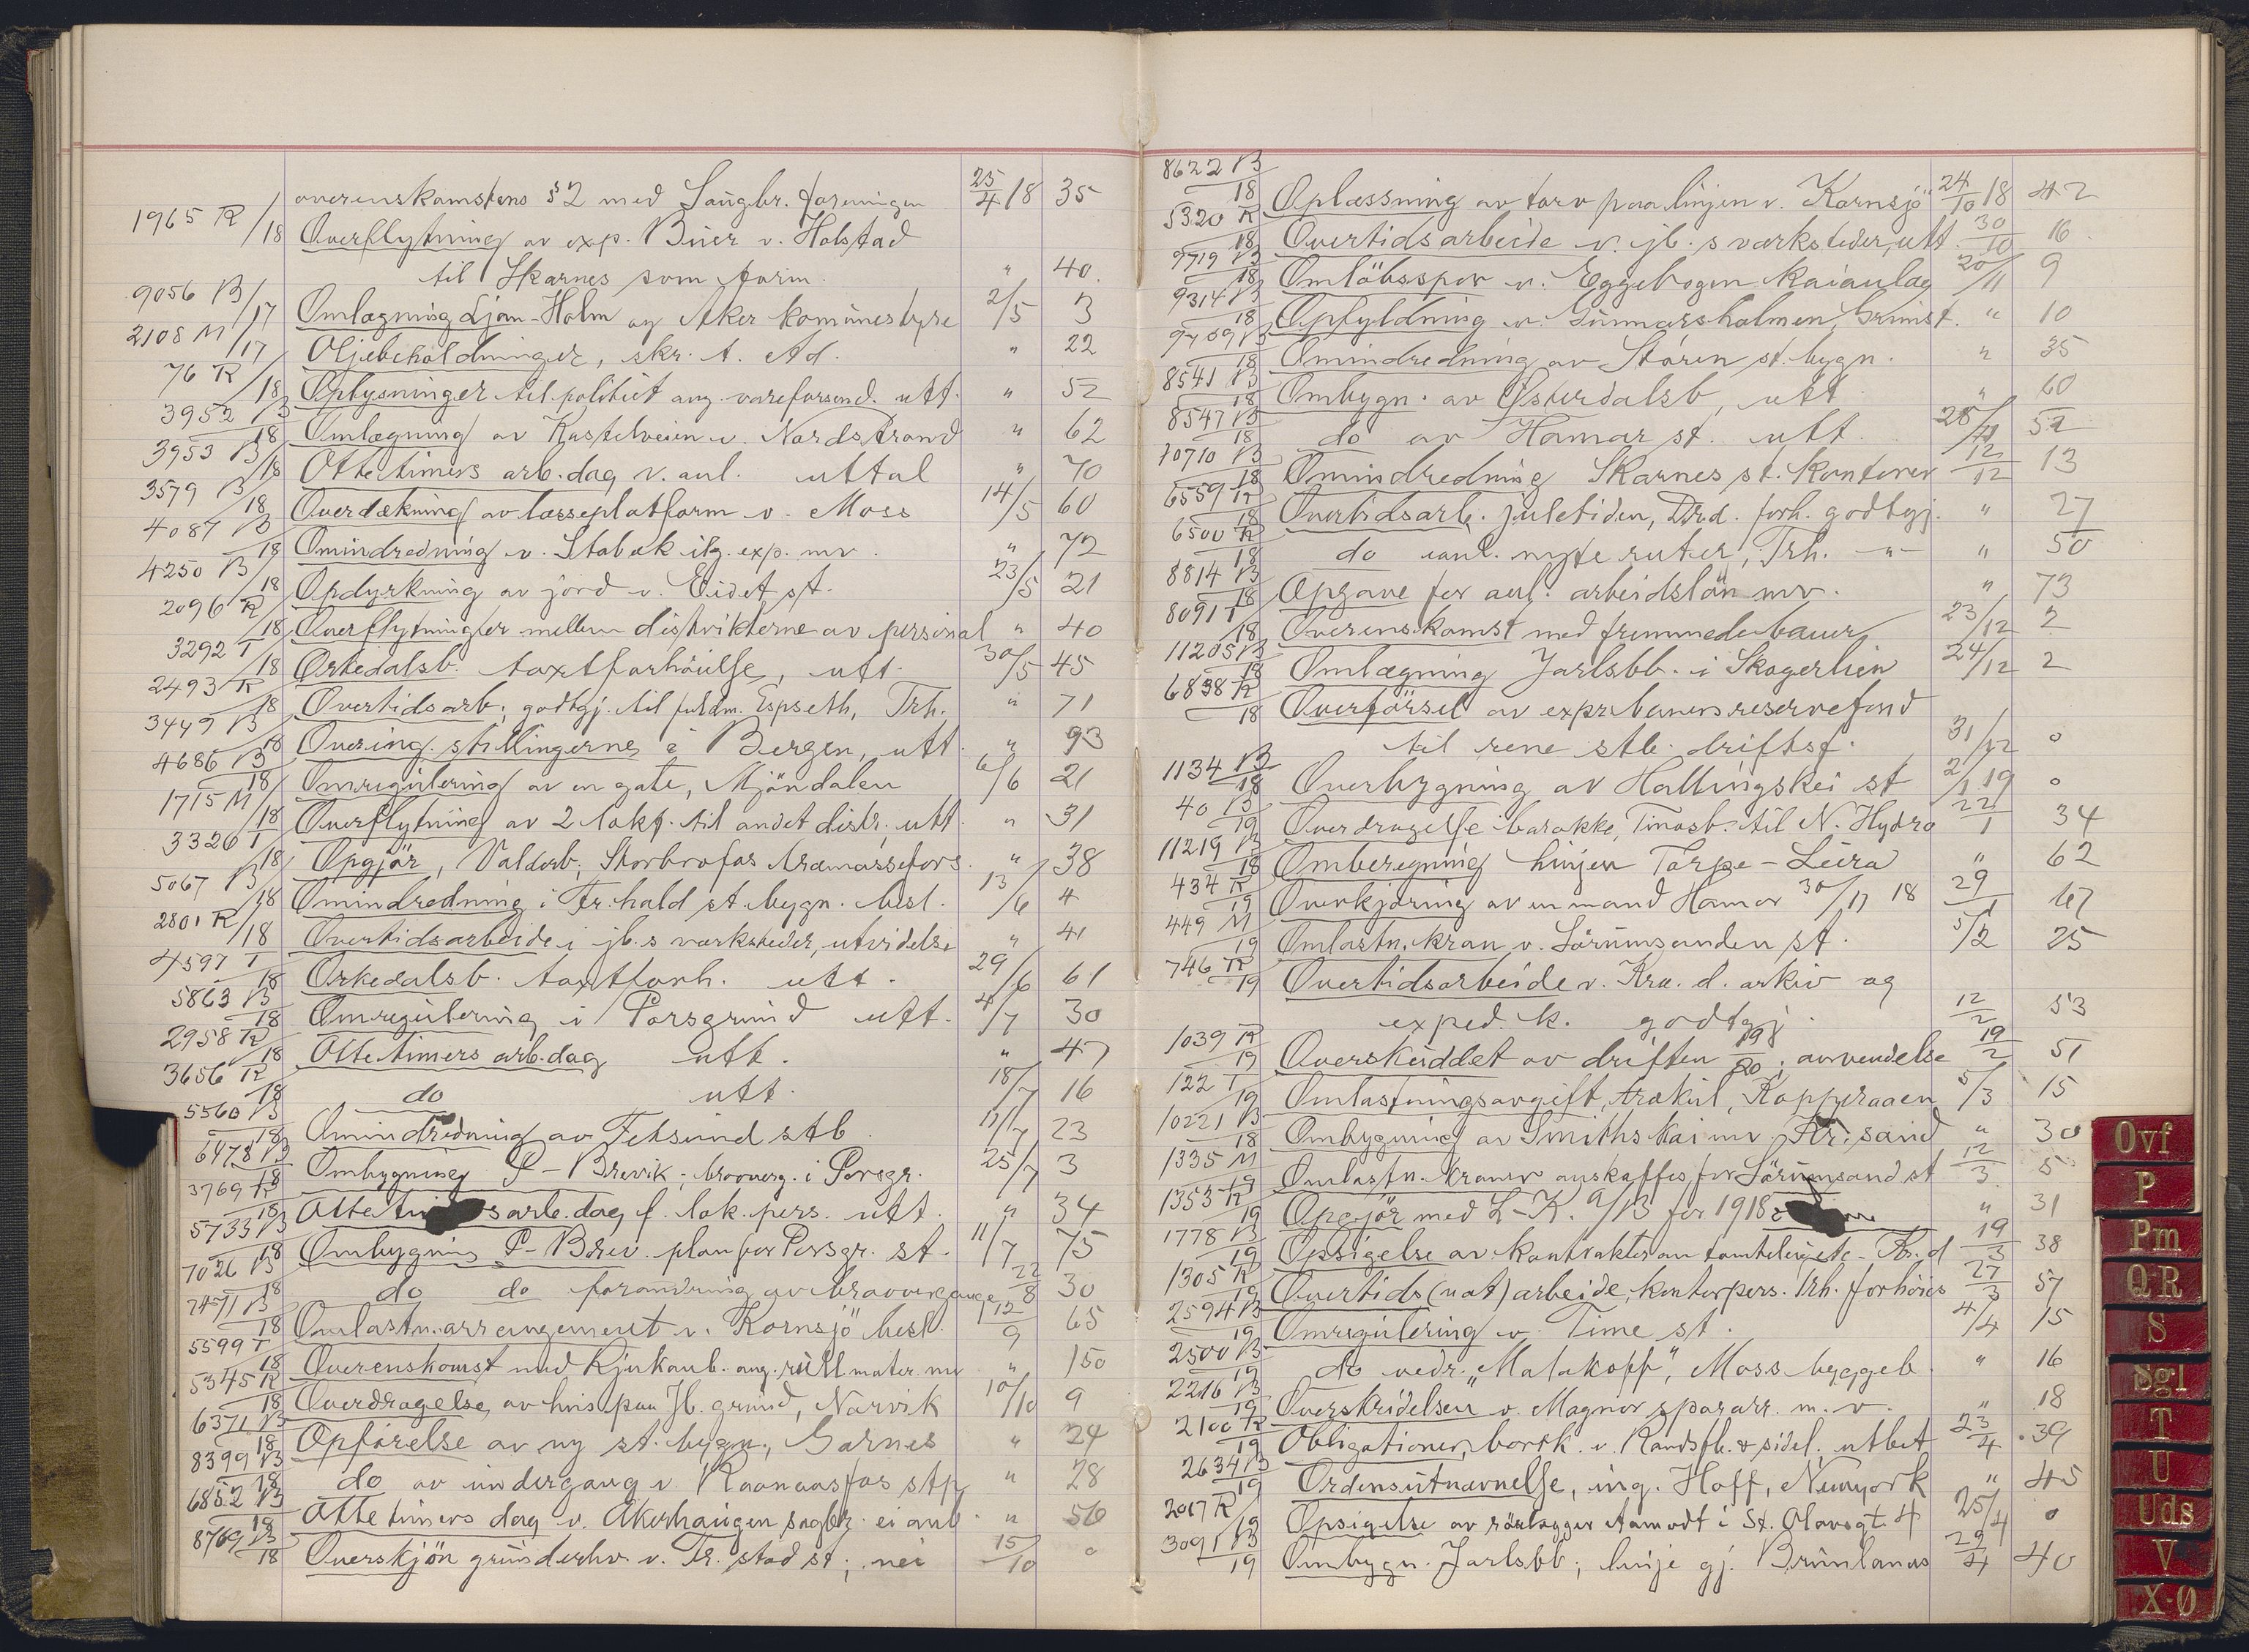 overenskomstens §2 med Saugbr. foreningen 25/4 18 35
1965 R/18 Overflytning av exp. Buer v. Holstad
til Skarnes som form. " 40.
9056 B/17 Omlægning Ljan-Holm og Aker komunestyre 2/5 3
2108 M/17 Oljebeholdninger, skr. f. Ad. " 22
76 R/18 Oplysninger til politiet ang. vareforsend. utt. " 52
3952 B/18 Omlægning av Kastelveien v. Nordstrand " 62
3953 B/18 Ottetimers arb.dag v. anl. uttal " 70
3579 B/18 Overdækning av læsseplatform v. Moss 14/5 60
4087 B/18 Omindredning v. Stabæk ilg. exp. mv. " 72
4250 B/18 Opdyrkning av jord v. Eidet st. 23/5 21
2096 R/18 Overflytninger mellem distrikterne av personal " 40
3292 T/18 Orkedalsb. taxtforhöielse, utt. 30/5 45
2493 R/18 Overtidsarb., godtgj. til fuldm. Espseth, Trh. " 71
3449 B/18 Overing. stillingerne i Bergen, utt. " 93
4686 B/18 Omregulering av en gate, Mjöndalen 6/6 21
1715 M/18 Overflytning av 2 lokf. til andet distr., utt. " 31
3326 T/18 Opgjör, Valdresb., Storbrofos træmassefors. " 38
5067 B/18 Omindredning i Fr.hald st. bygn. besl. 13/6 4
2801 R/18 Overtidsarbeide i jb.s værksteder, utvidelse " 41
4597 T/18 Orkedalsb. taxtforh. utt. 29/6 61
5863 B/18 Omregulering i Porsgrund utt. 4/7 30
2958 R/18 Ottetimers arb.dag utt. " 47
3656 R/18 do utt. 18/7 16
5560 B/18 Omindredning av Fetsund stb. 11/7 23
6478 B/18 Ombygning P-Brevik; brooverg. i Porsgr. 25/7 3
3769 R/18 Ottetimers arb.dag f. lok. pers. utt. " 34
5733 B/18 Ombygning P-Brev. plan for Porsgr. st. 11/7 75
7026 B/18 do do forandring av broovergange 22/8 30
7471 B/18 Omlastn.arrangement v. Kornsjö besl. 12/9 65
5599 T/18 Overenskomst med Rjukanb. ang. rull. mater. mv " 150
5345 R/18 Overdragelse av hus paa Jb. grund, Narvik 10/10 9
6371 B/18 Opförelse av ny st. bygn., Garnes " 24
8399 B/18 do av undergang v. Raanaasfos stp " 28
6852 B/18 Ottetimers dag v. Åkerhaugen sagbr. ei anb. " 56
8769 B/18 Overskjön grunderhv. v. Fr. stad st.; nei 15/10 0
8622 B/18 Oplæssning av torv paa linjen v. Kornsjö 24/10 18 42
5320 R/18 Overtidsarbeide v. jb.s værksteder, utt. 30/10 16
9719 B/18 Omlöbsspor v. Eggebogen kaianlæg 20/11 9
9314 B/18 Opfyldning v. Gunnarsholmen, Grimst. " 10
9409 B/18 Omindredning av Stören st. bygn. " 35
8541 B/18 Ombygn. av Østerdalsb, utt " 60
8547 B/18 do av Hamar st. utt. 28/11 52
10710 B/18 Omindredning Skarnes st. kontorer 12/12 13
6559 R/18 Overtidsarb. juletiden, Drd. forh. godtgj. " 27
6500 R/18 do anl. nyte ruter, Trh. -"- " 50
8814 B/18 Opgave for anl. arbeidslön mv. " 73
8091 T/18 Overenskomst med fremmede baner 23/12 2
11205 B/18 Omlægning Jarlsbb. i Skogerlien 24/12 2
6838 R/18 Overförsel av exprbanens reservefond
til rene stb. driftsf. 31/12 0
1134 B/18 Overbygning av Hallingskei st 2/1 19 0
40 B/19 Overdragelse barakke, Tinosb. til N. Hydro 22/1 34
11219 B/18 Omberegning linjen Torpe - Leira " 62
434 R/19 Overkjöring av en mand Hamar 30/11 18 29/1 67
449 M/19 Omlastn. kran v. Sörumsanden st. 5/2 25
746 R/19 Overtidsarbeide v. Kra. d. arkiv og
exped. k. godtgj. 12/2 53
1039 R/19 Overskuddet av driften 19 8/20; anvendelse 19/2 51
122 T/19 Omlastningsavgift, trækul, Kopperaaen 5/3 15
10221 B/18 Ombygning av Smiths kai mv. Kr.sand " 30
1335 M/19 Omlastn. kraner anskaffes for Sörumsand st 12/3 5
1353 R/19 Opgjör med L-K. A/B for 1918 " 31
1778 B/19 Opsigelse av kontrakter om tomteleie etc - Kr. d 19/3 38
1305 R/19 Overtids (nat) arbeide, kontorpers. Trh. forhöies 27/3 57
2594 B/19 Omregulering v. Time st. 4/4 15
2500 B/19 do vedr. "Malakoff", Moss byggeb. " 16
2216 B/19 Overskridelsen v. Magnor sporarr. m. v. " 18
2100 R/19 Obligationer, bortk. v. Randsfb. & sidel. utbet 23/4 39
2634 B/19 Ordensutnævnelse, ing. Hoff, Newyork " 45
2017 R/19 Opsigelse av rörlægger Aamodt i St. Olavsgt. 4 25/4 0
3091 B/19 Ombygn. Jarlsbb; linje gj. Brunlanes 29/4 40
Ovf
P
Pm
QR
S
Sgl
T
U
Uds
V
X-Ø